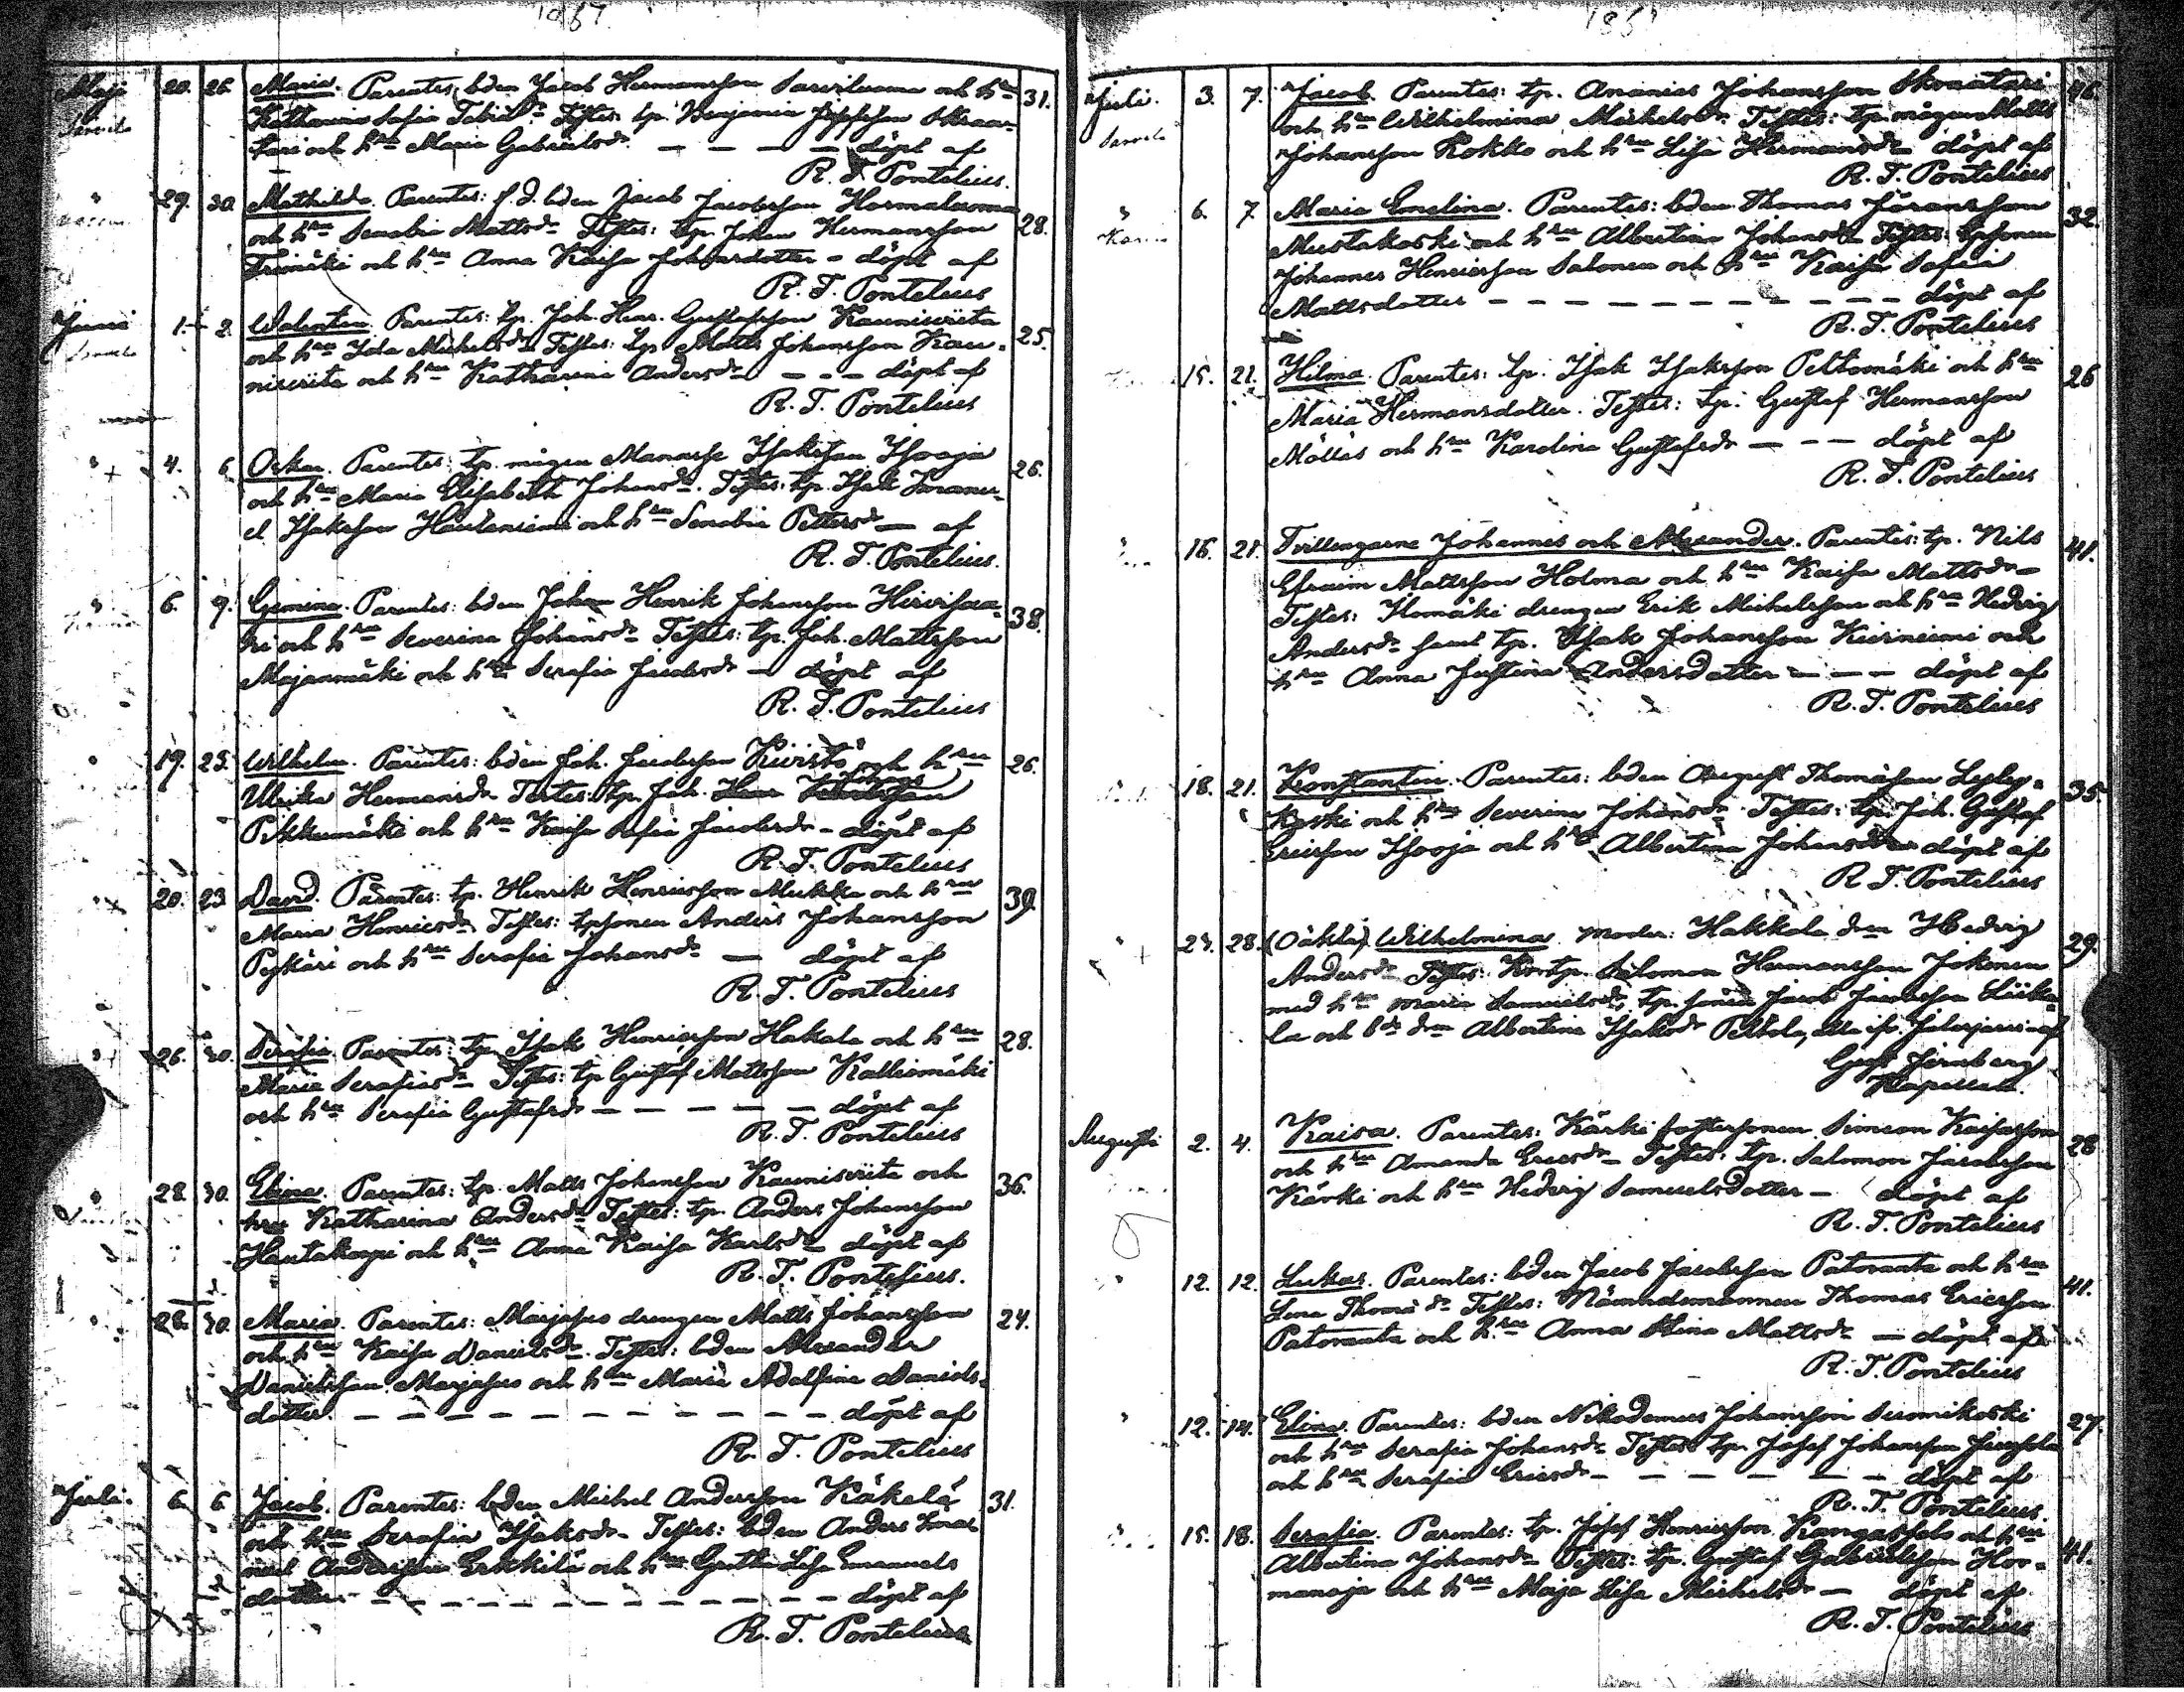 1867.
Maji 20. 26. Maria. Parentes, bden Jacob Hermansson och hru 31.
Katharina Sofia Testes: tp. Benjamin Josefsson Skraa-
tari och hru Maria Gabrielsdr — — — — döpt af
R. T. Pontelius.
" 29. 30. Mathilda. Parentes: f. d. bden Jacob Jacobsson Hormaluoma 28.
och hru Senabia Mattsdr Testes: tp. Johan Hermansson
och hru Anna Kaisa Johansdotter – döpt af
R. T. Pontelius
Juni 1. 2. Walentin. Parentes: tp. Joh. Henr. Gustafsson Kauniscüta 25.
och hru Ida Michelsdr Testes: tp. Matts Johansson Kau-
niscüta och hru Katharina Andersdr — — – döpt af
R. T. Pontelius
" 4. 6. Oskar. Parentes: tp. mågen Manasse Isaksson Isooja 26.
och hru Maria Elisabeth Johansdr. Testes: tp. Isak Imanu-
el Isaksson Hautaniemi och hru Senabia Pettersdr — af
R. T. Pontelius.
" 6. 9. Gemina. Parentes: bden Johan Henrik Johansson Hirvisaa- 38.
ri och hru Severina Johansdr Testes: tp. Joh. Mattsson
Majanmäki och hru Serafia Jacobsdr – döpt af
R. T. Pontelius
" 19. 23. Wilhelm. Parentes: bden Joh. Jacobsson Kivistö och hru 26.
Ulrika Hermansdr Testes: tp. Joh. Henr
Pikkumäki och hru Kaisa Sofia Jacobsdr – döpt af
R. T. Pontelius
" 20. 23 David. Parentes: tp. Henrik Henricsson Mukka och hru 39.
Maria Henricsdr Testes: tpsonen Anders Johansson
Pykäri och hru Serafia Johansdr — döpt af
R. T. Pontelius
" 26. 30. Serafia. Parentes: tp. Isak Henricsson Hakala och hru 28.
Maria Serafiasdr Testes: tp. Gustaf Mattsson Kalliomäki
och hru Serafia Gustafsdr — — — — — döpt af
R. T. Pontelius
" 28. 30. Elina. Parentes: tp. Matts Johansson Kauniscüta och 36.
hru Katharina Andersdr Testes: tp. Anders Johansson
Hautakorpi och hru Anna Kaisa Karlsdr – döpt af
R. T. Pontelius.
28. 30. Maria. Parentes: Marjapuo drengen Matts Johansson 24.
och hru Kaisa Danielsdr. Testes: bden Alexander
Danielsson Marjapuo och hru Maria Adolfina Daniels-
dotter. — — — — — — — — — — döpt af
R. T. Pontelius
Juli. 6. 6 Jacob. Parentes: bden Michel Andersson Käkelä 31.
och hru Serafia Isaksdr Testes: bden Anders Ima-
nuel Andersson Erkkilä och hru Greta Lisa Emanuels
dotter. — — — — — — — — — — döpt af
R. T. Pontelius
1867
Juli. 3. 7. Jacob. Parentes: tp. Ananias Johansson Skraatari 46.
och hru Wilhelmina Michelsdr. Testes: tp. mågen Matts
Johansson Kokko och hru Lisa Hermansdr – döpt af
R. T. Pontelius
" 6. 7 Maria Emelina. Parentes: bden Thomas Jöransson 32.
Mustakoski och hru Albertina Johansdr Testes: tpsonen
Johannes Henricsson Salonen och hru Kaisa Sofia
Mattsdotter — — — — — — — — — — döpt af
R. T. Pontelius
15. 21. Hilma. Parentes: tp. Isak Isaksson Peltomäki och hru 26
Maria Hermansdotter. Testes: tp. Gustaf Hermansson
Möttäs och hru Karolina Gustafsdr — – – döpt af
R. T. Pontelius
16. 21. Tvillingarne Johannes och Alexander. Parentes: tp. Nils 41.
Efraim Mattsson Holma och hru Kaisa Mattsdr –
Testes: Homäki drengen Erik Michelsson och hru Hedvig
Andersdr samt tp. Isak Johansson Kiviniemi och
hru Anna Justina Andersdotter – – – döpt af
R. T. Pontelius
18. 21. Konstantin. Parentes: bden August Thomasson Lyly- 35.
koski och hru Severina Johansdr Testes: tp. Joh. Gustaf
Ericsson Isooja och hru Albertina Johansdr döpt af
R. T. Pontelius
" 23. 28. (Oäkta) Wilhelmina. Moder: Hakkola Hedvig 29.
Andersdr Testes: Salomon Hermansson Jokinen
med hru Maria Samuelsdr, tp. sonen Jacob Jacobsson Liika-
la och Albertina Isaksdr Peltola, af
Gust. Jernberg
Kapellan.
Augusti 2. 4. Kaisa. Parentes: Kärki fostersonen Simeon Kaisasson 28
och hru Amanda Ericsdr – Testes: tp. Salomon Jacobsson
Kärki och hru Hedvig Samuelsdotter — döpt af
R. T. Pontelius
" 12. 12. Lukas. Parentes: bden Jacob Jacobsson Patoranta och hru 41.
Lena Thomasdr Testes: Nämndemannen Thomas Ericsson
Patoranta och hru Anna Stina Mattsdr — döpt af
R. T. Pontelius
" 12. 14. Elina. Parentes: bden Nikodemus Johansson Seronikoski 27.
och hru Serafia Johansdr Testes: tp. Josef Johansson
och hru Serafia Ericsdr – — — — — — döpt af
R. T. Pontelius.
15. 18. Serafia. Parentes: tp. Josef Henricsson Kangassalo och hru 41.
Albertina Johansdr Testes: tp. Gustaf Gabrielsson Hor-
manoja och hru Maja Lisa Michelsdr — döpt af
R. T. Pontelius